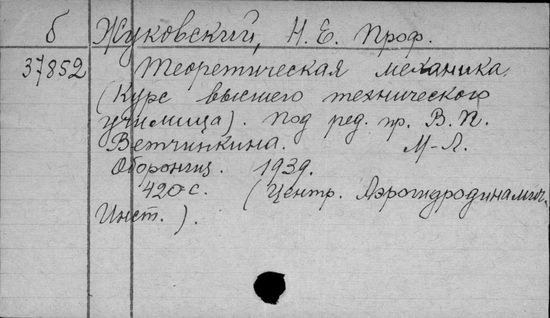 б Жуковский, Н. Е. Проф.
37852 Теоретическая механика.
(Курс высшего технического
училища). Под ред. пр. В. П.
Ветчинкина. М-Л.
Оборонгиз. 1939.
420 с. (Центр. Аэрогидродинамич.
Инст.).